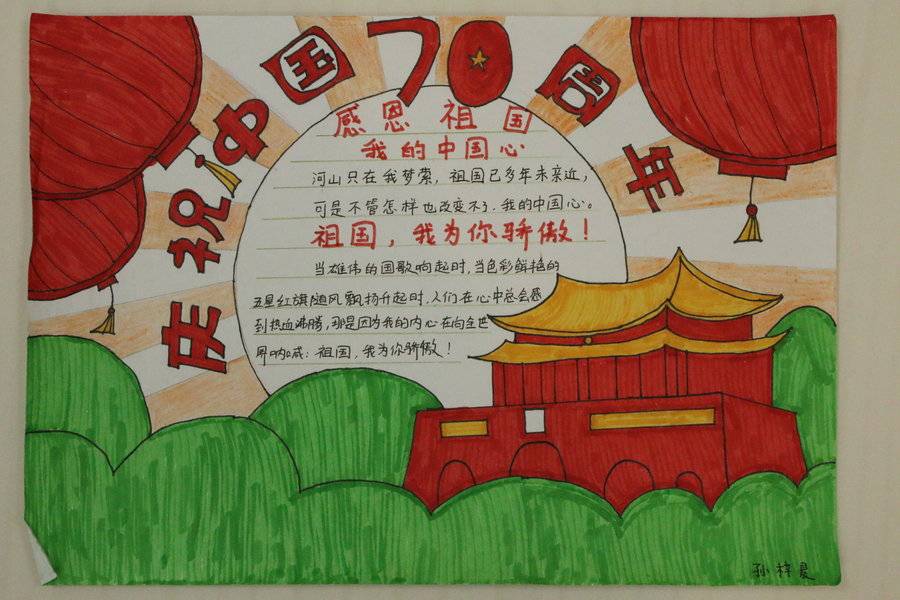 庆祝中国70周年
感恩祖国
我的中国心
河山只在我梦萦，祖国已多年未亲近，
可是不管怎样也改变不了.我的中国心。
祖国，我为你骄傲！
当雄伟的国歌响起时，当色彩鲜艳的
五星红旗随风飘扬升起时，人们在心中总会感
到热血沸腾，那是因为我的内心在向全世
界呐喊：祖国，我为你骄傲！
孙梓